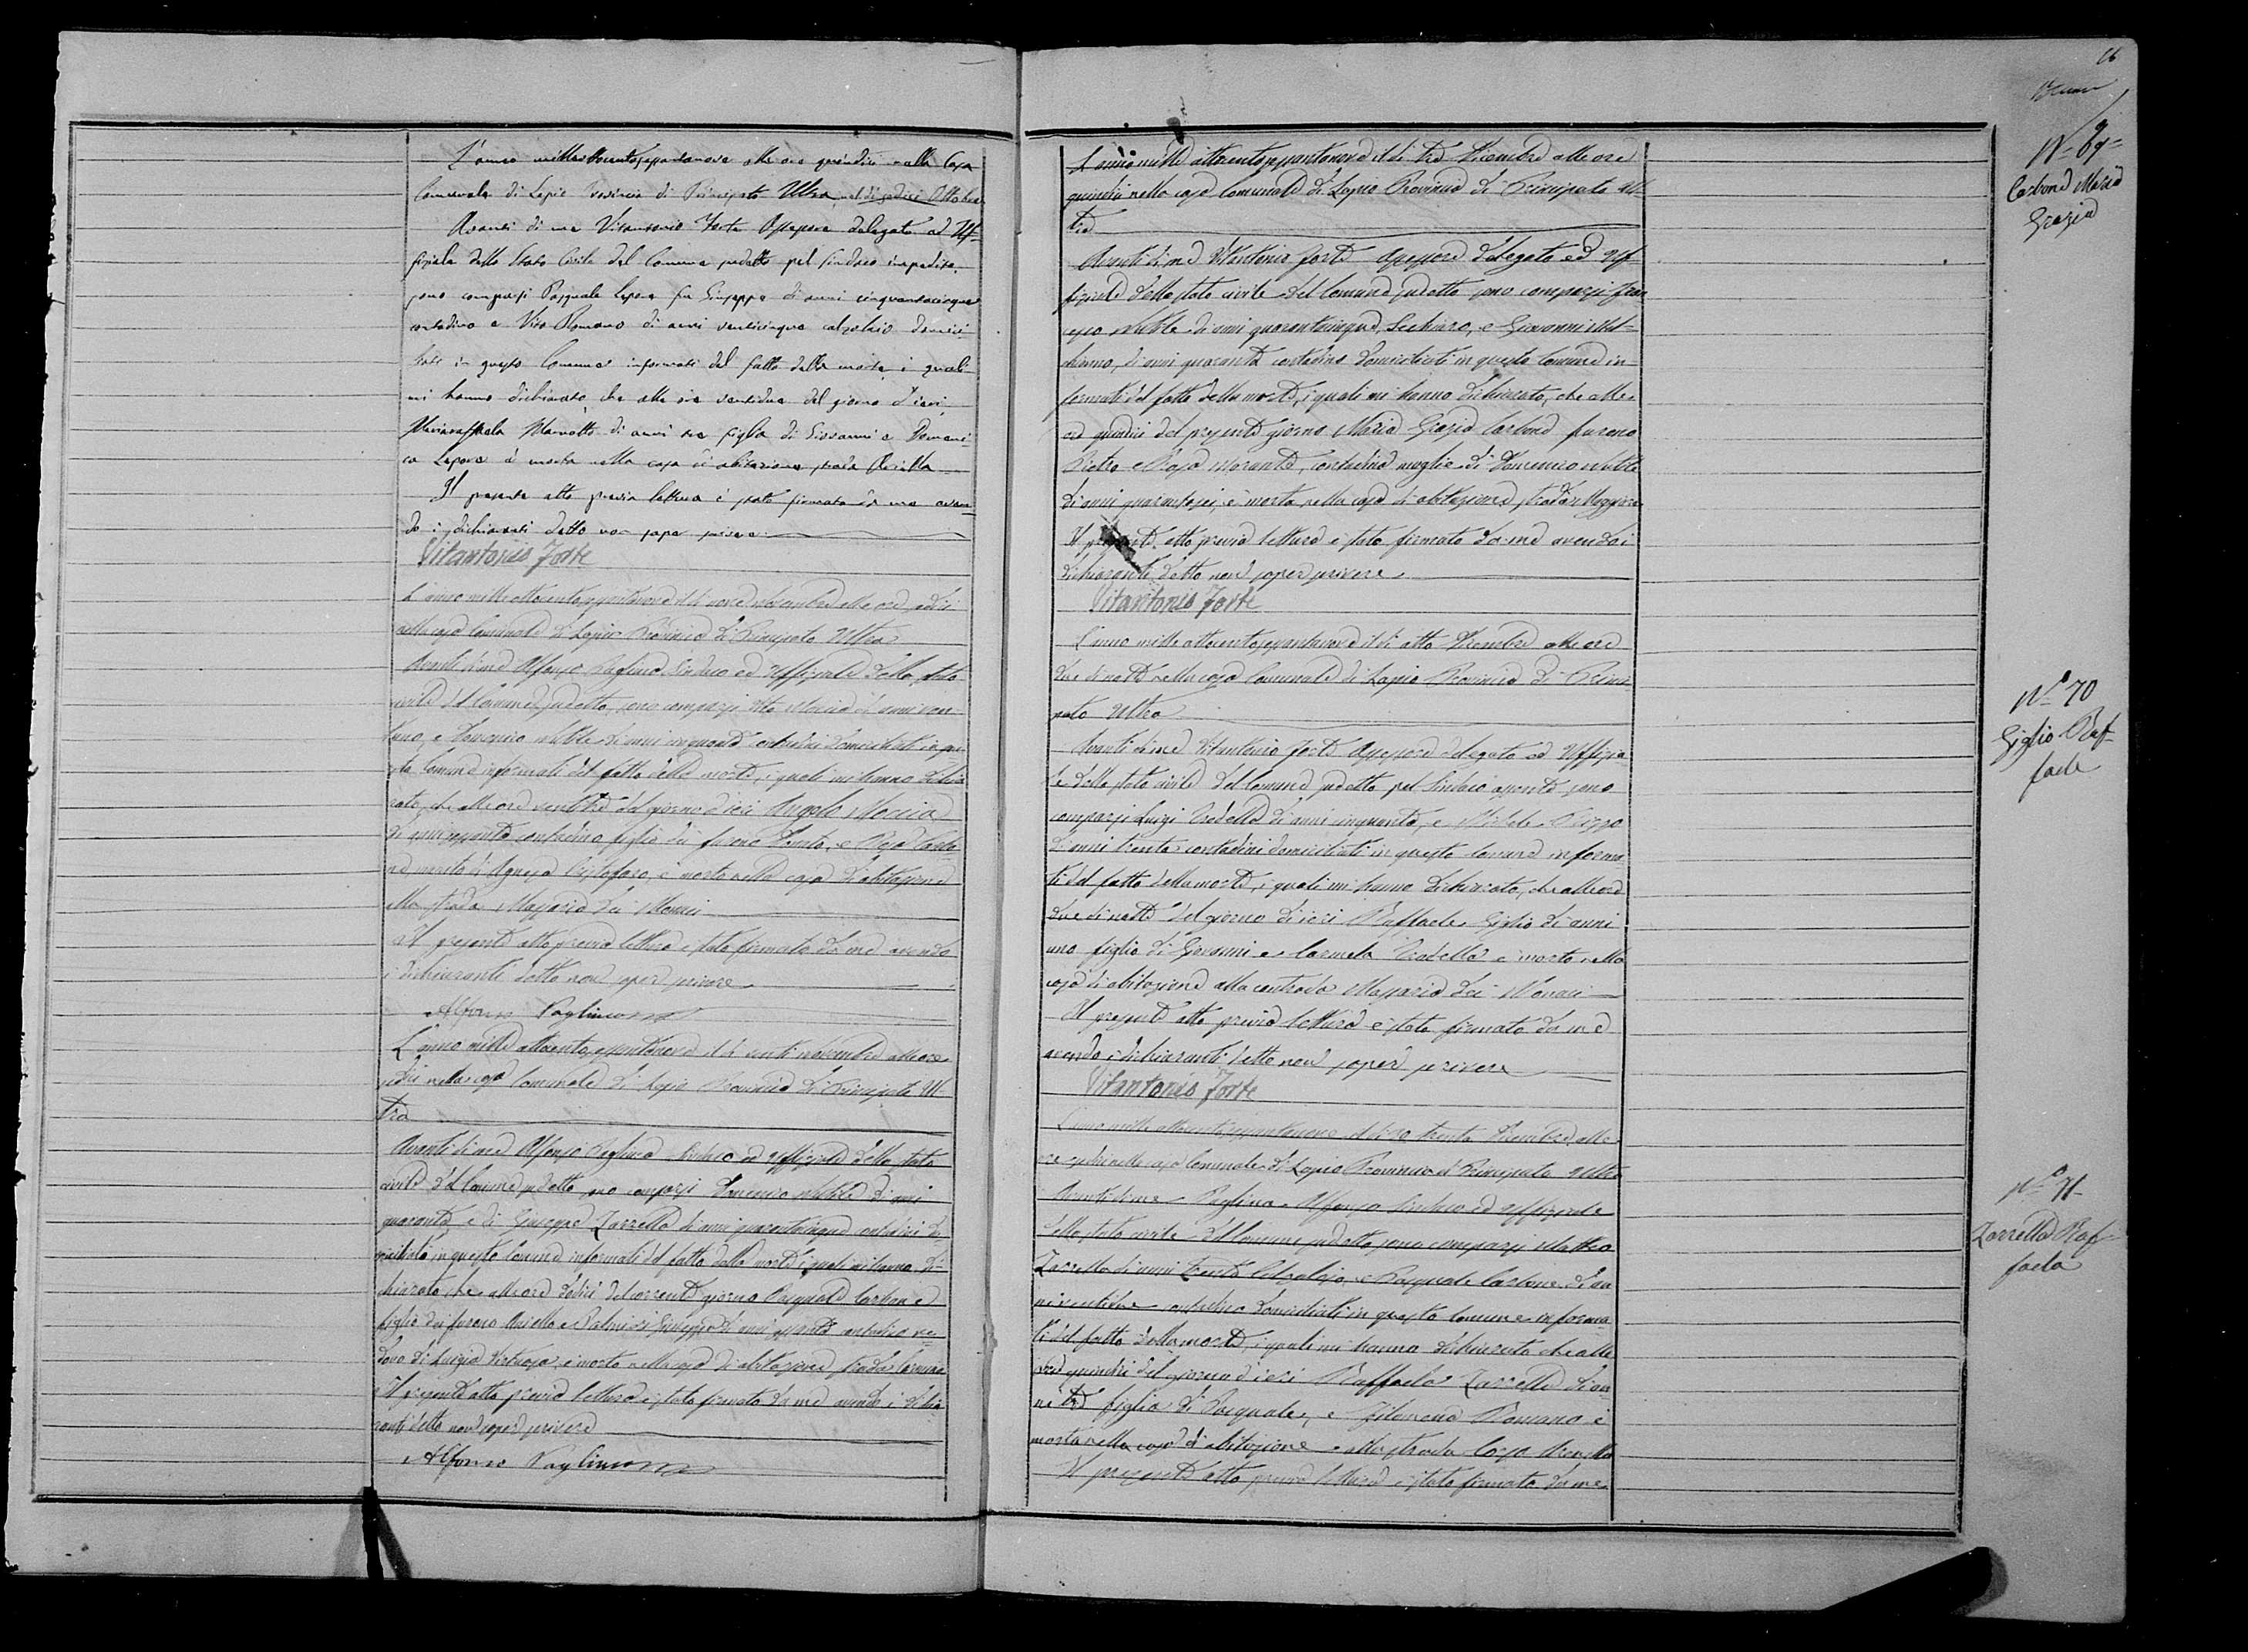 L'anno milleottocentosessantanove alle ore quindici nella Casa
Comunale di Lapio Provincia di Principato Ultra, nel dì sedici Ottobre
Avanti di me Vitantonio Forte Assessore delegato ad Uf-
fiziale dello Stato Civile del Comune sudetto pel Sindaco impedito,
sono comparsi Pasquale Lepore fu Giuseppe di anni cinquantacinque
contadino e Vito Romano di anni venticinque calzolaio domici-
liati in questo Comune informati del fatto della morte, i quali
mi hanno dichiarato, che alle ore ventidue del giorno d'ieri,
Mariaraffaela di anni tre figlia di Giovanni e Domeni-
ca Lepore è morta nella casa di abitazione strada
Il presente atto previa lettura è stato firmato da me aven-
do i dichiaranti detto non saper scrivere
Vitantonio Forte
L'anno mille ottocentosessantanove il dì nove Novembre alle ore sedici
nella casa Comunale di Lapio Provincia di Principato Ultra
Avanti di me Alfonso Paglino Sindaco ed Uffiziale dello stato
civile del Comune sudetto, sono comparsi Vito Moccia di anni ven-
tuno, e Domenico Nobile di anni cinquanta contadini domiciliati in que-
sto Comune informati del fatto della morte, i quali mi hanno dichia-
rato, che alle ore ventitre del giorno d'ieri Angelo Moccia
di anni sessanta contadino figlio dei furono Donato, e Rosa Carbo-
ne marito di Agnesa Cristofaro, è morto nella casa d'abitazione
alla strada Masseria dei Monaci
Il presente atto previa lettura è stato firmato da me avendo
i dichiaranti detto non saper scrivere
Alfonso Paglino
L'anno mille ottocentosessantanove il dì venti Novembre alle ore
sedici nella casa Comunale di Lapio Provincia di Principato Ul-
tra
Avanti di me Alfonso Paglino Sindaco ed Uffiziale dello stato
civile del Comune sudetto sono comparsi Domenico Nobile di anni
quaranta e di Giuseppe Zarrella di anni quarantacinque contadini do-
miciliati in questo Comune informati del fatto della morte i quali mi hanno di-
chiarato, che alle ore dodici del corrente giorno Pasquale Carbone
figlio dei furono Aniello e Giuseppa di anni sessanta contadino ve-
dovo di Luigia è morto nella casa di abitazione strada
Il presente atto previa lettura è stato firmato da me avendo i dichia-
ranti detto non saper scrivere
Alfonso Paglino
L'anno mille ottocentosessantanove il dì tre Dicembre alle ore
quindici nella casa Comunale di Lapio Provincia di Principato Ul-
tra
Avanti di me Vitantonio Forte Assessore delegato ed Uf-
fiziale dello stato civile del Comune sudetto sono comparsi Fran-
cesco Nobile di anni quarantacinque, e Giovanni
di anni quaranta contadino domiciliati in questo Comune in-
formati del fatto della morte, i quali mi hanno dichiarato, che alle
ore quindici del presente giorno Maria Grazia Carbone furono
Pietro e Rosa Morante, contadina moglie di Domenico Nobile
di anni quarantasei, è morta nella casa di abitazione strada Maggiore
Il presente atto previa lettura è stato firmato da me avendo i
dichiaranti detto non saper scrivere
Vitantonio Forte
L'anno mille ottocentosessantanove il dì otto Dicembre alle ore
due di notte nella casa Comunale di Lapio Provincia di Princi-
pato Ultra
Avanti di me Vitantonio Forte Assessore delegato ed Uffizia-
le dello stato civile del Comune sudetto pel Sindaco assente sono
comparsi Luigi di anni cinquanta, e Michele Rizzo
di anni trenta contadini domiciliati in questo Comune informa-
ti del fatto della morte, i quali mi hanno dichiarato, che alle ore
due di notte del giorno di ieri Raffaele Giglio di anni
uno figlio di Giovanni e Carmela è morto nella
casa di abitazione alla contrada Masseria dei Monaci
Il presente atto previa lettura è stato firmato da me
avendo i dichiaranti detto non saper scrivere
Vitantonio Forte
L'anno mille ottocentosessantanove il giorno trenta Dicembre alle
ore sedici nella casa Comunale di Lapio Provincia di Principato Ultra
Avanti di me Paglino Alfonso Sindaco ed Uffiziale
dello stato civile del Comune sudetto sono comparsi Matteo
Zarrella di anni trenta Calzolaio, e Pasquale Carbone di an-
ni ventidue contadino domiciliati in questo Comune informa-
ti del fatto della morte, i quali mi hanno dichiarato che alle
ore quindici del giorno d'ieri Raffaela Zarrella di an-
ni tre figlia di Pasquale, e Filomena Romano è
morta nella casa di abitazione alla strada
Il presente atto previa lettura è stato firmato da me
N. 69
Carbone Maria
Grazia
N.° 70
Giglio Raf-
faele
N.° 71
Zarrella Raf-
faela